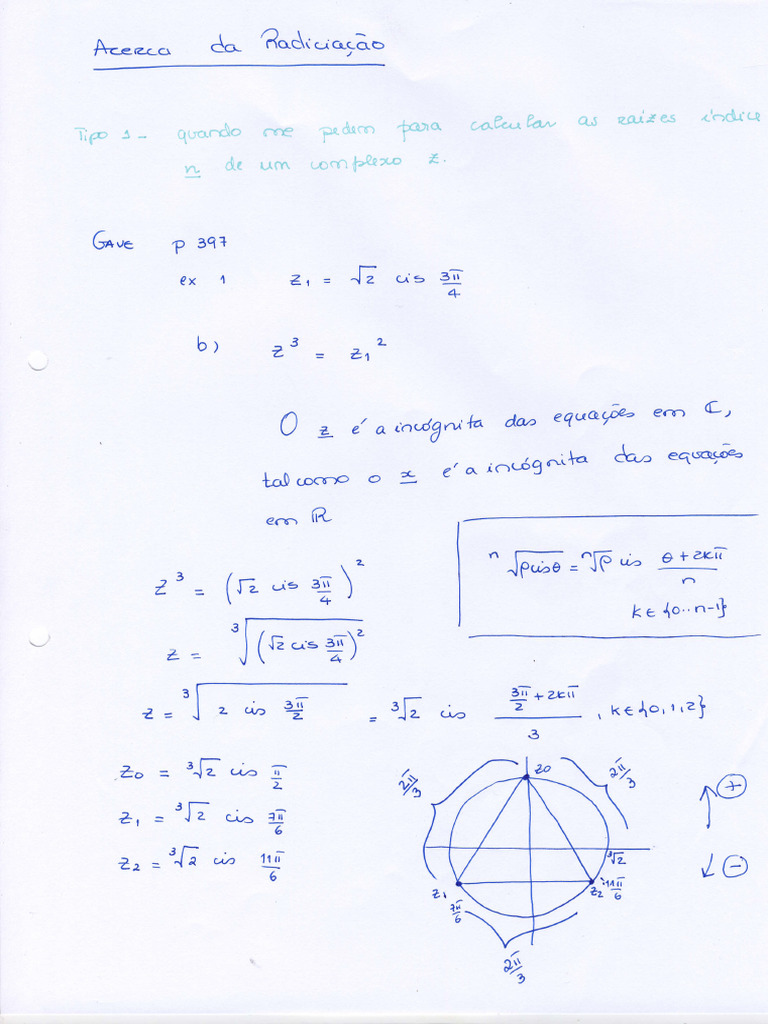 Acerca da Radiciação
Tipo 1 - quando me pedem para calcular as raizes índice
n de um complexo z.
GAVE p 397
ex 1 z₁ = √2 cis 3π/4
b) z³ = z₁²
O z é a incógnita das equações em ℂ,
tal como o x é a incógnita das equações
em ℝ
ⁿ√(ρcisθ) = ⁿ√ρ cis (θ + 2kπ)/n
k ∈ {0..n-1}
z³ = (√2 cis 3π/4)²
z = ³√((√2 cis 3π/4)²)
z = ³√(2 cis 3π/2) = ³√2 cis (3π/2 + 2kπ)/3 , k ∈ {0,1,2}
z0 = ³√2 cis π/2
z₁ = ³√2 cis 7π/6
z2 = ³√2 cis 11π/6
z0
2π/3
2π/3
+
³√2
-
z₁
7π/6
z2
11π/6
2π/3